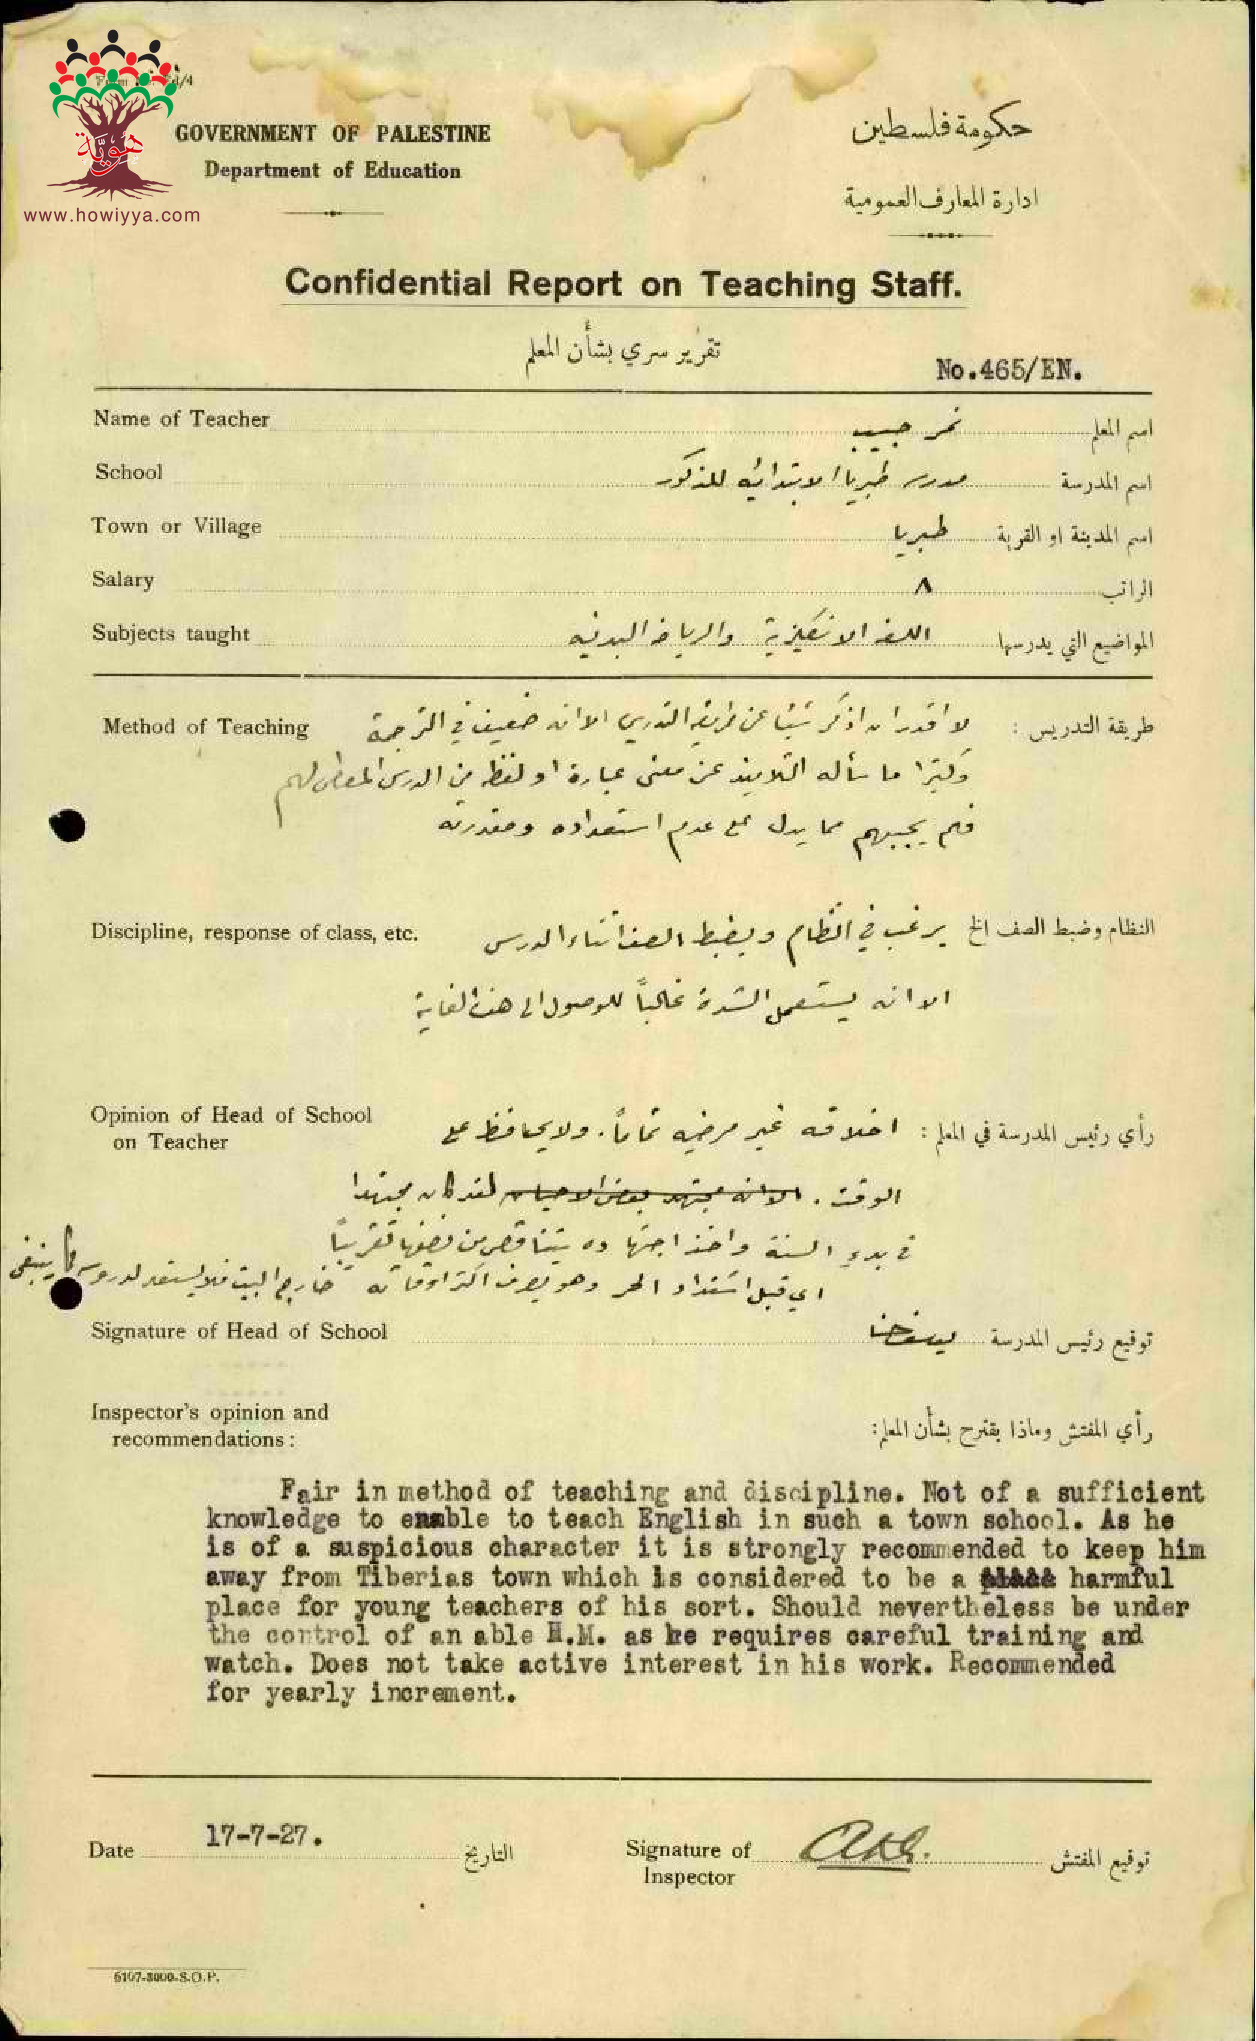 هوية
www.howiyya.com
GOVERNMENT OF PALESTINE
Department of Education
حكومة فلسطين
ادارة المعارف العمومية
Confidential Report on Teaching Staff.
تقرير سري بشأن المعلم
No.465/EN.
Name of Teacher نمر حبيب اسم المعلم
School مدرسة طبريا الابتدائيه للذكور اسم المدرسة
Town or Village طبريا اسم المدينة او القرية
Salary ٨ الراتب
Subjects taught اللغه الانكليزية والرياضه البدنيه المواضيع التي يدرسها
Method of Teaching طريقة التدريس : لا اقدر ان اذكر شيئا عن طريقة التدريس الا انه ضعيف في الترجمة
وكثيرا ما سأله التلاميذ عن معنى عبارة او لفظة من الدرس المعطى لهم
فلم يجيبهم مما يدل على عدم استعداده ومقدرته
Discipline, response of class, etc. النظام وضبط الصف الخ يرغب في النظام ويضبط الصف اثناء الدرس
الا انه يستعمل الشدة غالباً للوصول الى هذه الغاية
Opinion of Head of School
on Teacher
رأي رئيس المدرسة في المعلم : اخلاقه غير مرضيه تماماً. ولا يحافظ على
الوقت. الا انه مجتهد بعض الاحيان لقد كان مجتهدا
في بدء السنة واخذ اجتهاده يتناقص من نصفها تقريباً
اي قبل اشتداد الحر وهو يصرف اكثر اوقاته خارج البيت فلا يستعد لدروسه كما ينبغي
Signature of Head of School توقيع رئيس المدرسة
Inspector's opinion and
recommendations :
رأي المفتش وماذا يقترح بشأن المعلم:
Fair in method of teaching and discipline. Not of a sufficient
knowledge to enable to teach English in such a town school. As he
is of a suspicious character it is strongly recommended to keep him
away from Tiberias town which is considered to be a harmful
place for young teachers of his sort. Should nevertheless be under
the control of an able H.M. as he requires careful training and
watch. Does not take active interest in his work. Recommended
for yearly increment.
Date 17-7-27. التاريخ
Signature of
Inspector
توقيع المفتش
6107-3000-S.O.P.